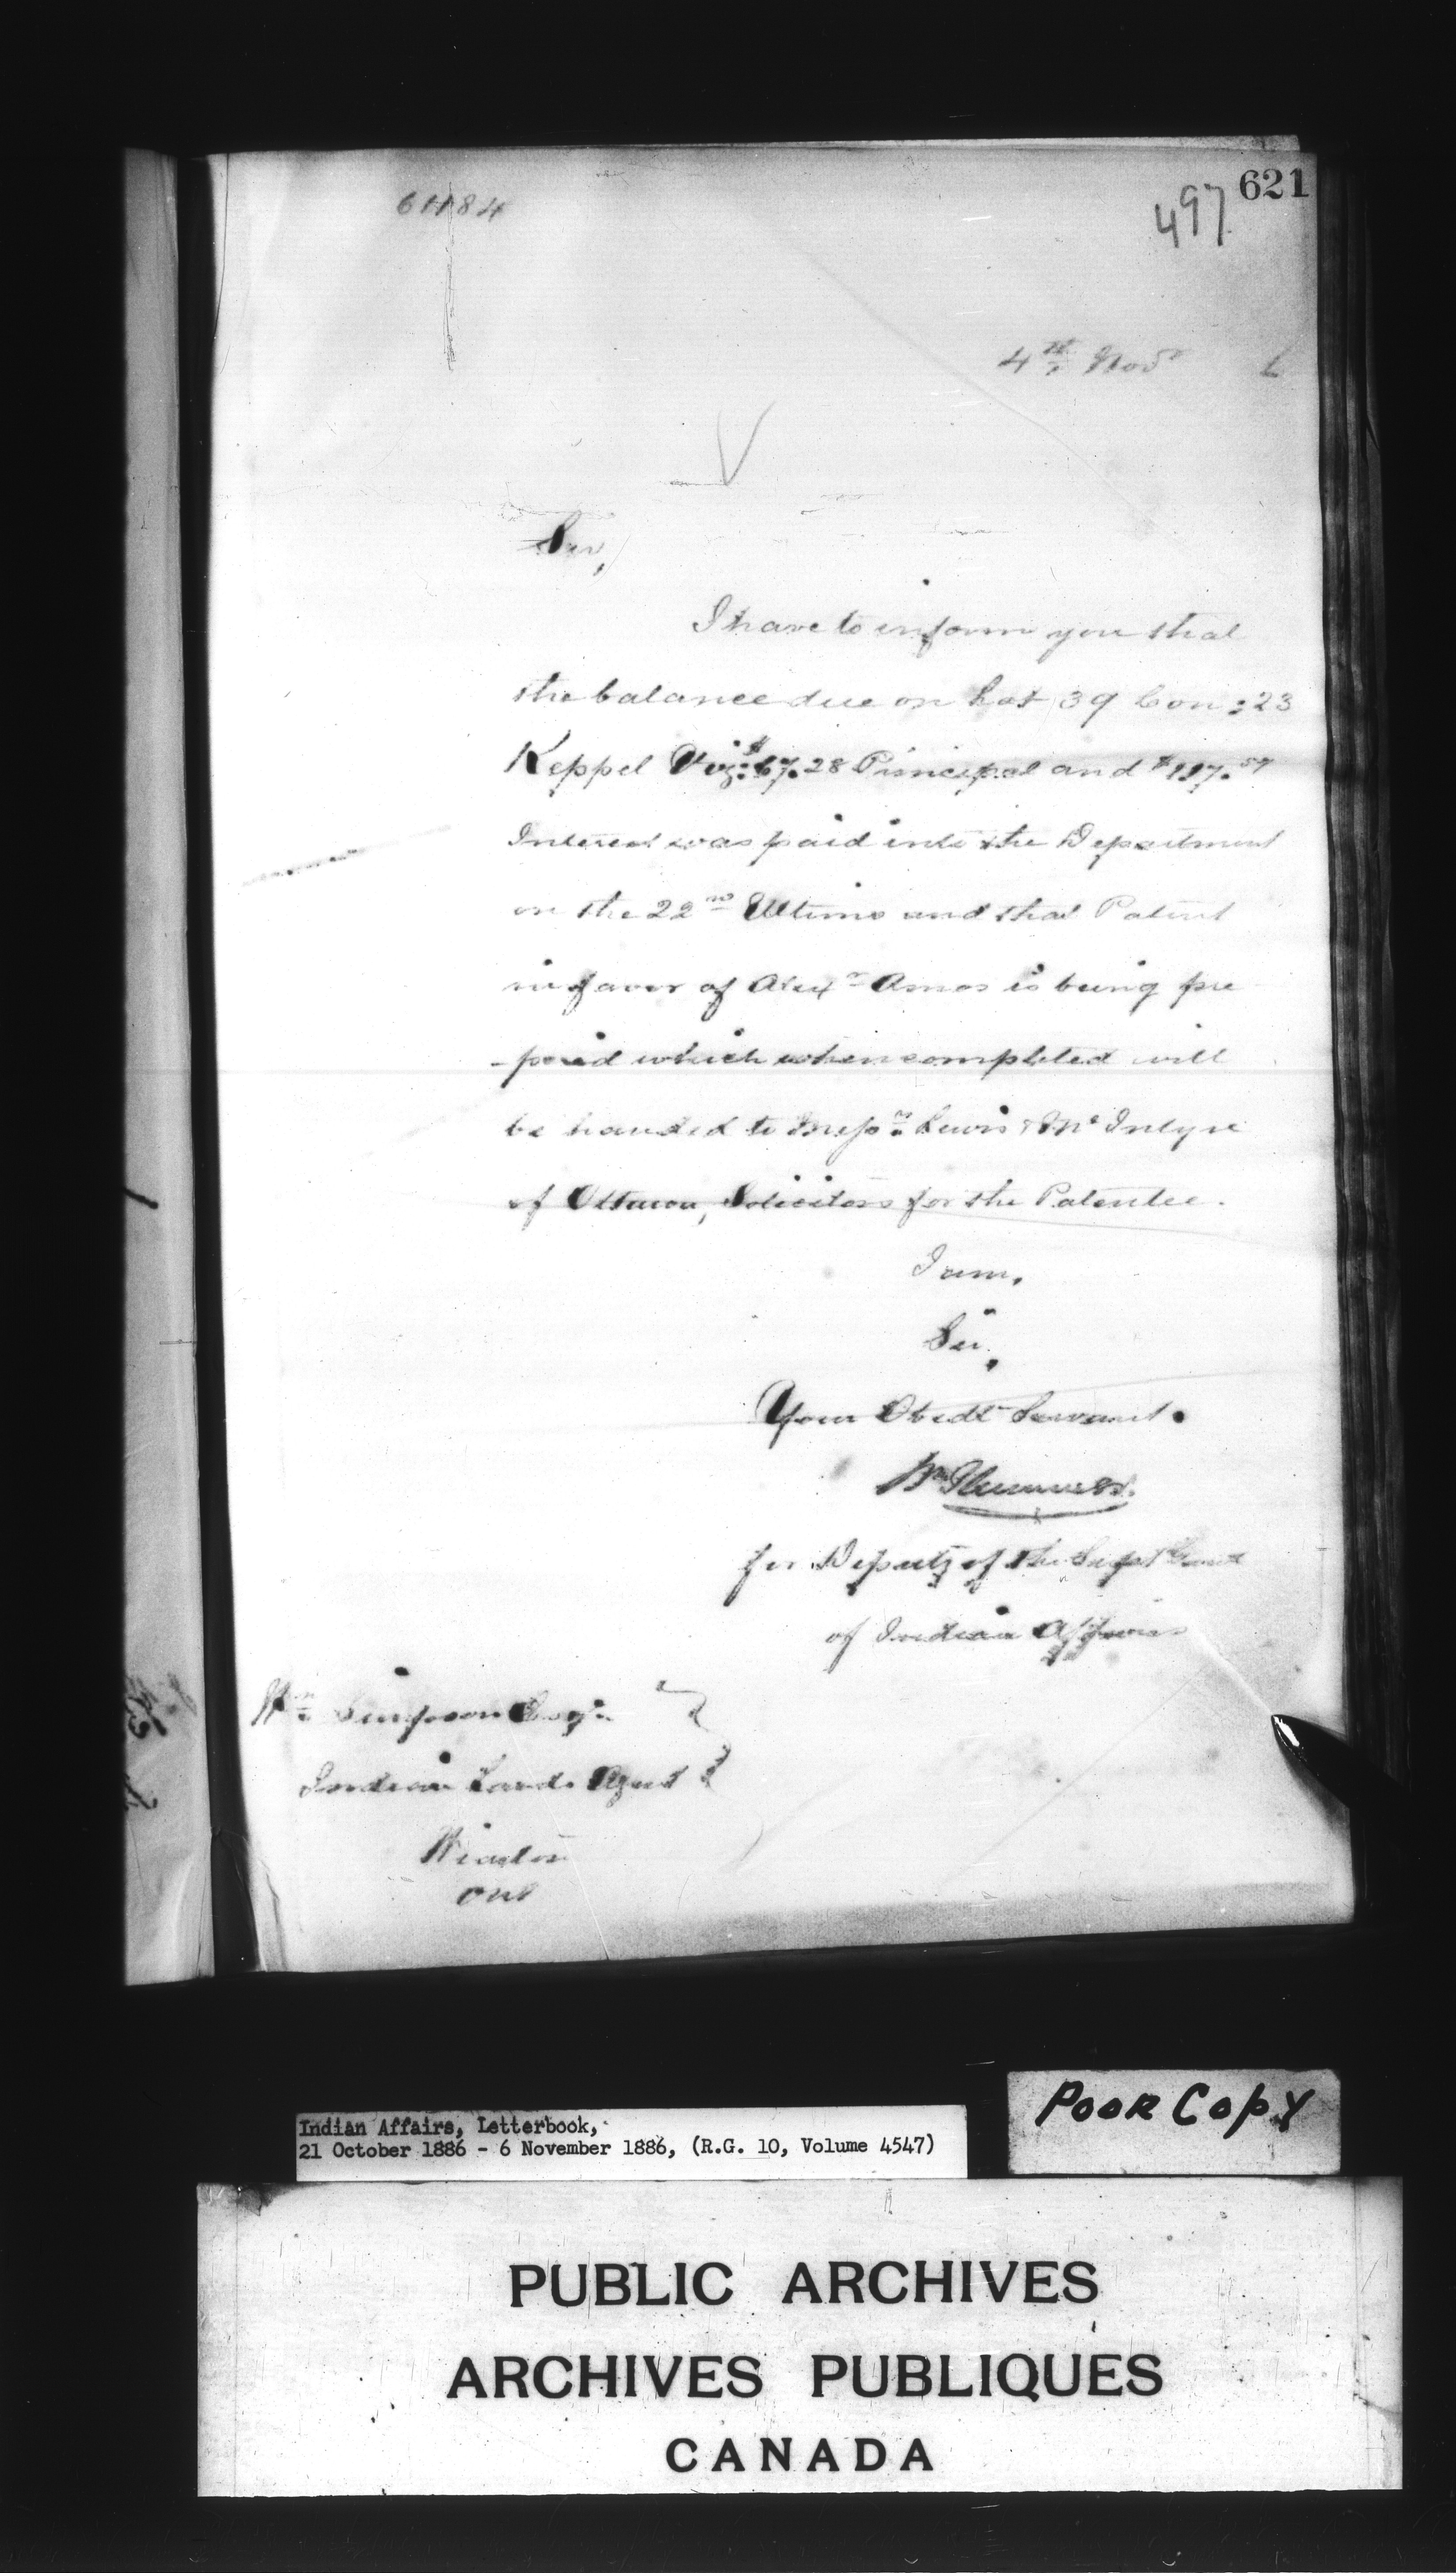 621
497
4th Novr 6
Sir,
I have to inform you that
the balance due on Lot 39 Con: 23
Keppel Viz: $67.28 Principal and $117.57
Interest was paid into the Department
on the 22nd Ultimo and that Patent
in favor of Alexr Amos is being pre
-pared which when completed will
be handed to Messrs Lewis & McIntyre
of Ottawa, Solicitors for the Patentee.
I am,
Sir,
Your Obedt Servant.
Wm Plummer.
for Deputy of the Supt Genl
of Indian Affairs
Wm Simpson Esqr
Indian Land Agent
Wiarton
Ont
POOR COPY
Indian Affairs, Letterbook,
21 October 1886 - 6 November 1886, (R.G. 10, Volume 4547)
PUBLIC ARCHIVES
ARCHIVES PUBLIQUES
CANADA